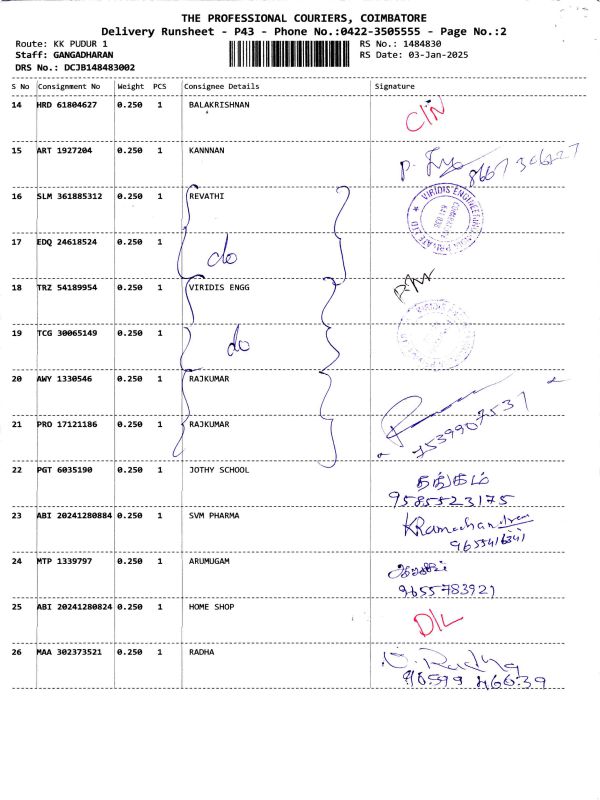 THE PROFESSIONAL COURIERS, COIMBATORE
Delivery Runsheet - P43 - Phone No.:0422-3505555 - Page No.:2
Route: KK PUDUR 1 RS No.: 1484830
Staff: GANGADHARAN RS Date: 03-Jan-2025
DRS No.: DCJB148483002
S No Consignment No Weight PCS Consignee Details Signature
14 HRD 61804627 0.250 1 BALAKRISHNAN
15 ART 1927204 0.250 1 KANNNAN
16 SLM 361885312 0.250 1 REVATHI
17 EDQ 24618524 0.250 1 do
18 TRZ 54189954 0.250 1 VIRIDIS ENGG
19 TCG 30065149 0.250 1 do
20 AWY 1330546 0.250 1 RAJKUMAR
21 PRO 17121186 0.250 1 RAJKUMAR
7539907531
22 PGT 6035190 0.250 1 JOTHY SCHOOL
9585523175
23 ABI 20241280884 0.250 1 SVM PHARMA KRamachandran
24 MTP 1339797 0.250 1 ARUMUGAM
9655783921
25 ABI 20241280824 0.250 1 HOME SHOP D/L
26 MAA 302373521 0.250 1 RADHA Radha